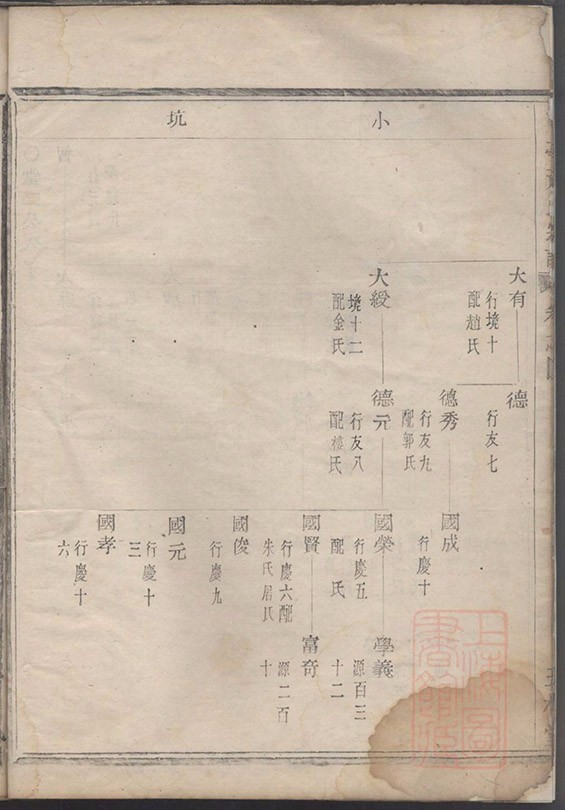 小坑
大有
行境十
配趙氏
大綬
境十二
配金氏
德
行友七
德秀
行友九
配郭氏
德元
行友八
配樓氏
國成
行慶十
國榮
行慶五
配 氏
國賢
行慶六配
朱氏居氏
國俊
行慶九
國元
行慶十
三
國孝
行慶十
六
學義
源百三
十二
富奇
源二百
十
上海圖
書館藏